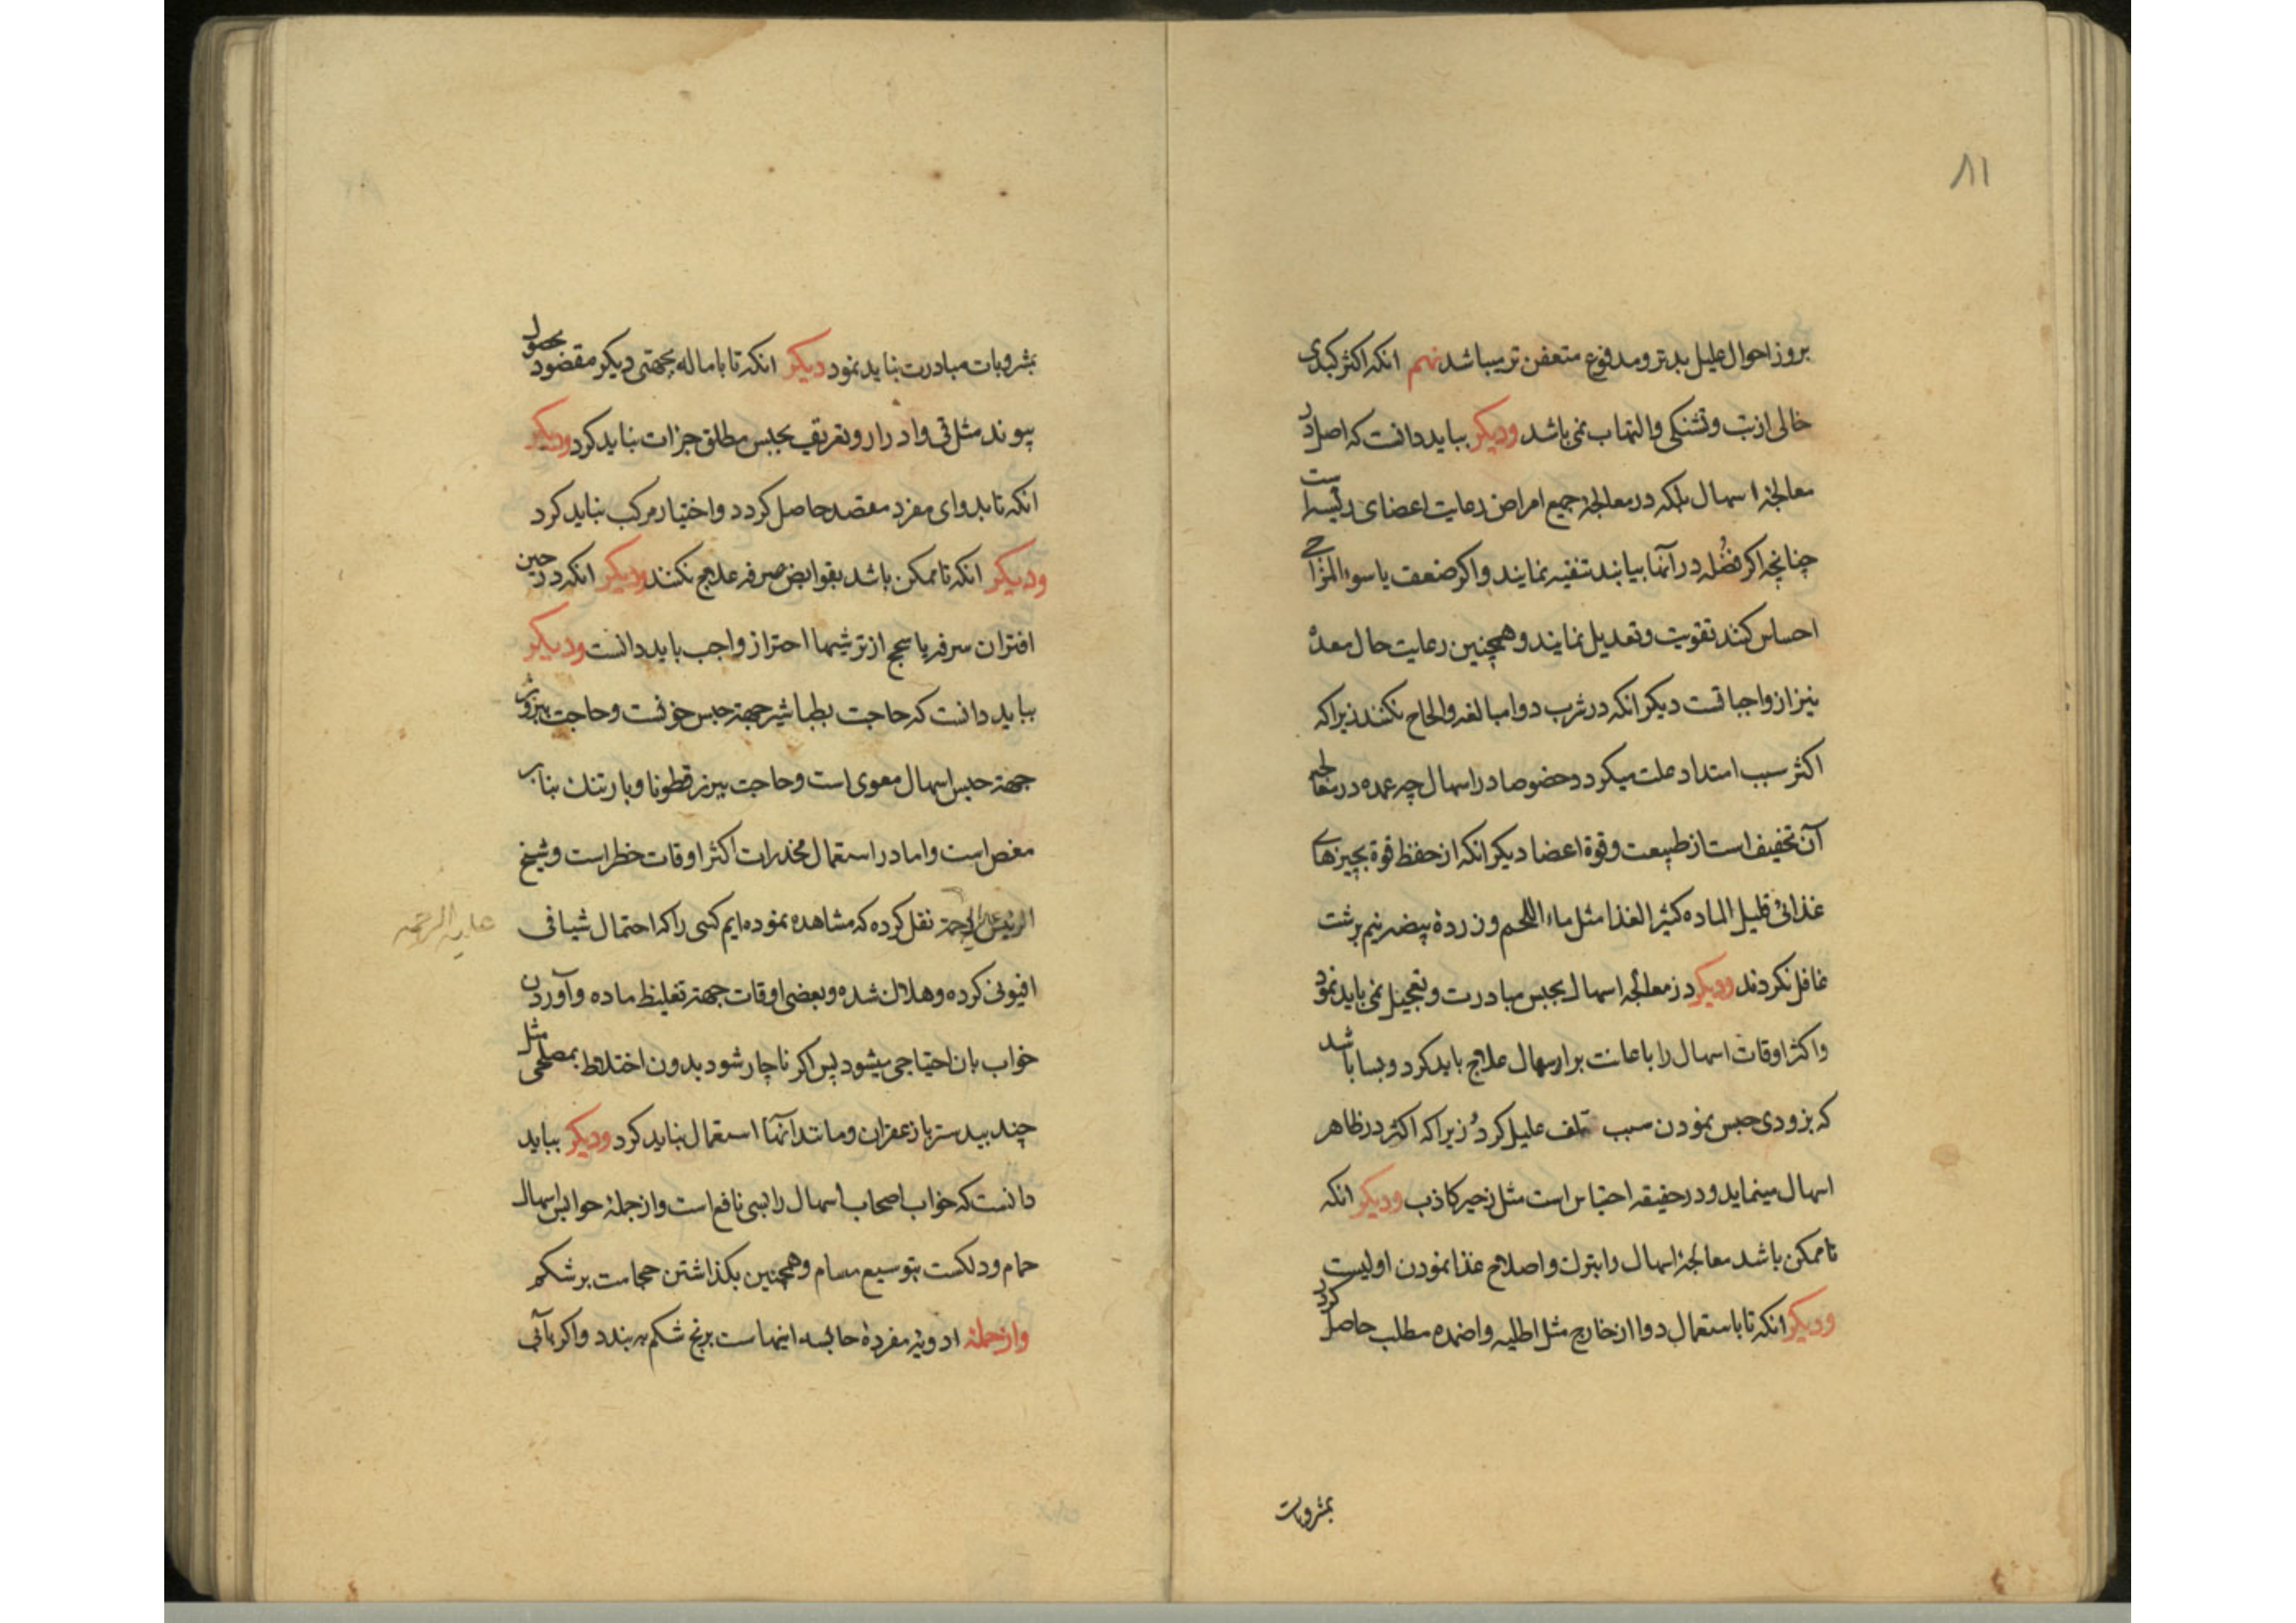 ۸۱
بروز احوال علیل بدتر و مدفوع متعفن تر میباشد نهم انکه اکثر کبدی
خالی از تب و تشنکی و التهاب نمی باشد و دیکر بباید دانست که اصل در
معالجهٔ اسهال بلکه در معالجهٔ جمیع امراض رعایت اعضای رئیسه است
چنانچه اکر فضله در آنها بیابند تنقیه نمایند و اکر ضعف یا سوء المزاجی
احساس کنند تقویت و تعدیل نمایند و همچنین رعایت حال معدهٔ
نیز از واجباتست دیکر انکه در شرب دوا مبالغه و الحاح نکنند زیراکه
اکثر سبب امتداد علت میکردد خصوصا در اسهال چه عمده در معالجه
آن تخفیف است از طبیعت و قوة اعضا دیکر انکه از حفظ قوة بچیزهای
غذائی قلیل الماده کثیر الغذا مثل ماء اللحم و زردهٔ بیضه نیم برشت
غافل نکردند و دیکر در معالجهٔ اسهال بحبس مبادرت و تعجیل نمی باید نمود
و اکثر اوقات اسهال را باعانت بر اسهال علاج باید کرد و بسا باشد
که بزودی حبس نمودن سبب تلف علیل کردد زیراکه اکثر در ظاهر
اسهال مینماید و در حقیقه احتباس است مثل زحیر کاذب و دیکر انکه
تا ممکن باشد معالجهٔ اسهال را بترک و اصلاح غذا نمودن اولیست
و دیکر انکه تا باستعمال دوا از خارج مثل اطلیه و اضمده مطلب حاصل کردد
بمشروبات
بمشروبات مبادرت نباید نمود دیکر انکه تا باماله بجهتی دیکر مقصود بحصول
پیوندد مثل قی و ادرار و تعریق بحبس مطلق جرات نباید کرد و دیکر
انکه تا بدوای مفرد مقصد حاصل کردد و اختیار مرکب نباید کرد
و دیکر انکه تا ممکن باشد بقوابض صرفه علاج نکنند و دیکر انکه در حین
اقتران سرفه یا سحج از ترشیها احتراز واجب باید دانست و دیکر
بباید دانست که حاجت بطباشیر جهة حبس خونست و حاجت ببزور
جهة حبس اسهال معوی است و حاجت ببزر قطونا و بارتنک بنابر
مغص است و اما در استعمال مخدرات اکثر اوقات خطر است و شیخ
الرئیس علیه الرحمة نقل کرده که مشاهده نموده ایم کسی را که احتمال شیافی
علیه الرحمه
افیونی کرده و هلاک شده و بعضی اوقات جهة تغلیظ ماده و آوردن
خواب بان احتیاجی میشود پس اکر ناچار شود بدون اختلاط بمصلحی مثل
جندبیدستر یا زعفران و مانند آنها استعمال نباید کرد و دیکر بباید
دانست که خواب اصحاب اسهال را بسی نافع است و از جملهٔ حوابس اسهال
حمام و دلکست بتوسیع مسام و همچنین بکذاشتن حجامت بر شکم
و از جملهٔ ادویهٔ مفردهٔ حابسه اینهاست برنج شکم به بندد و اکر بآبی